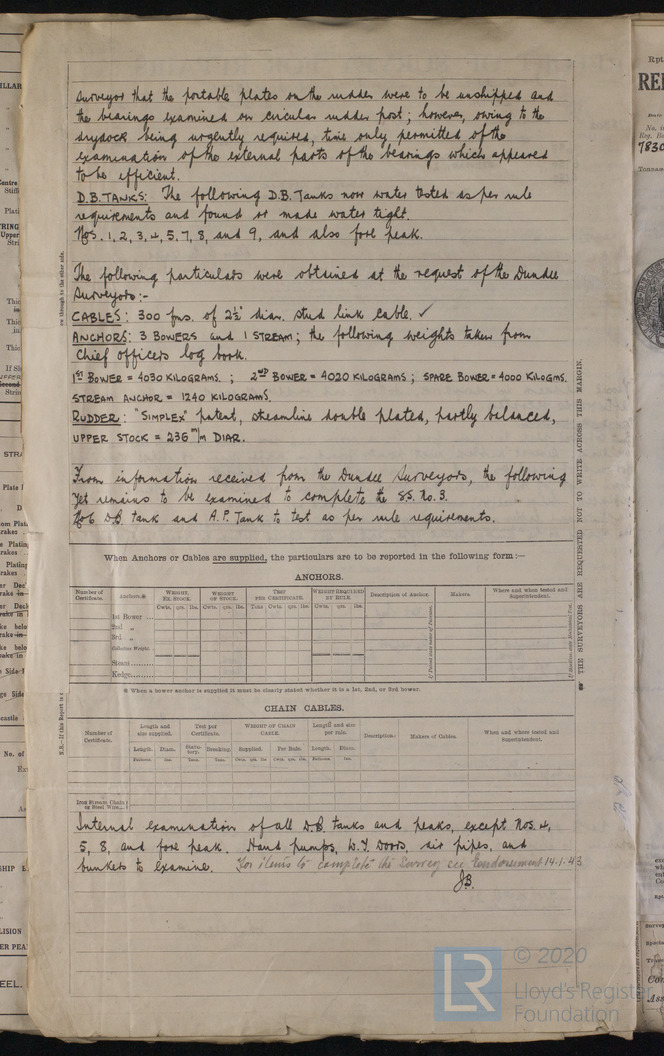 surveyor that the portable plates on the rudder were to be unshipped and
the bearings examined on circular rudder post; however, owing to the
drydock being urgently required, time only permitted of the
examination of the external parts of the bearings which appeared
to be efficient.
D.B. TANKS: The following D.B. Tanks now water tested as per rule
requirements and found or made water tight.
Nos. 1, 2, 3, 4, 5, 7, 8, and 9, and also fore peak.
The following particulars were obtained at the request of the Dundee
Surveyors:-
CABLES: 300 fms. of 2½" diar. stud link cable. ✓
ANCHORS: 3 BOWERS and 1 STREAM; the following weights taken from
Chief officers log book.
1ST BOWER = 4030 KILOGRAMS. ; 2ND BOWER = 4020 KILOGRAMS ; SPARE BOWER = 4000 KILOGMS.
STREAM ANCHOR = 1240 KILOGRAMS.
RUDDER: "SIMPLEX" patent, streamline double plated, partly balanced,
UPPER STOCK = 236 m/m DIAR.
From information received from the Dundee Surveyors, the following
yet remains to be examined to complete the SS. No. 3.
No 6 D.B. tank and A.P. Tank to test as per rule requirements.
When Anchors or Cables are supplied, the particulars are to be reported in the following form :—
ANCHORS.
Number of Certificate. Anchors.* WEIGHT, EX. STOCK. WEIGHT OF STOCK. TEST PER CERTIFICATE. WEIGHT REQUIRED BY RULE. Description of Anchor. Makers. Where and when tested and Superintendent.
Cwts. qrs. lbs. Cwts. qrs. lbs. Tons Cwts. qrs. lbs. Cwts. qrs. lbs.
1st Bower ...
2nd „
3rd „
Collective Weight
Stream
Kedge
* When a bower anchor is supplied it must be clearly stated whether it is a 1st, 2nd, or 3rd bower.
CHAIN CABLES.
Number of Certificate. Length and size supplied. Test per Certificate. WEIGHT OF CHAIN CABLE. Length and size per rule. Description. Makers of Cables. When and where tested and Superintendent.
Length. Diam. Statutory. Breaking. Supplied. Per Rule. Length. Diam.
Fathoms. Ins. Tons. Tons. Cwts. qrs. lbs Cwts. qrs. lbs Fathoms Ins.
Iron Stream Chain or Steel Wire
Internal examination of all D.B. tanks and peaks, except Nos. 4,
5, 8, and fore peak. Hand pumps, W.T. Doors, air pipes, and
bunkers to examine. For items to complete the Survey see Endorsement 14.1.43
JB.
THE SURVEYORS ARE REQUESTED NOT TO WRITE ACROSS THIS MARGIN.
LR
© 2020
Lloyd's Register
Foundation